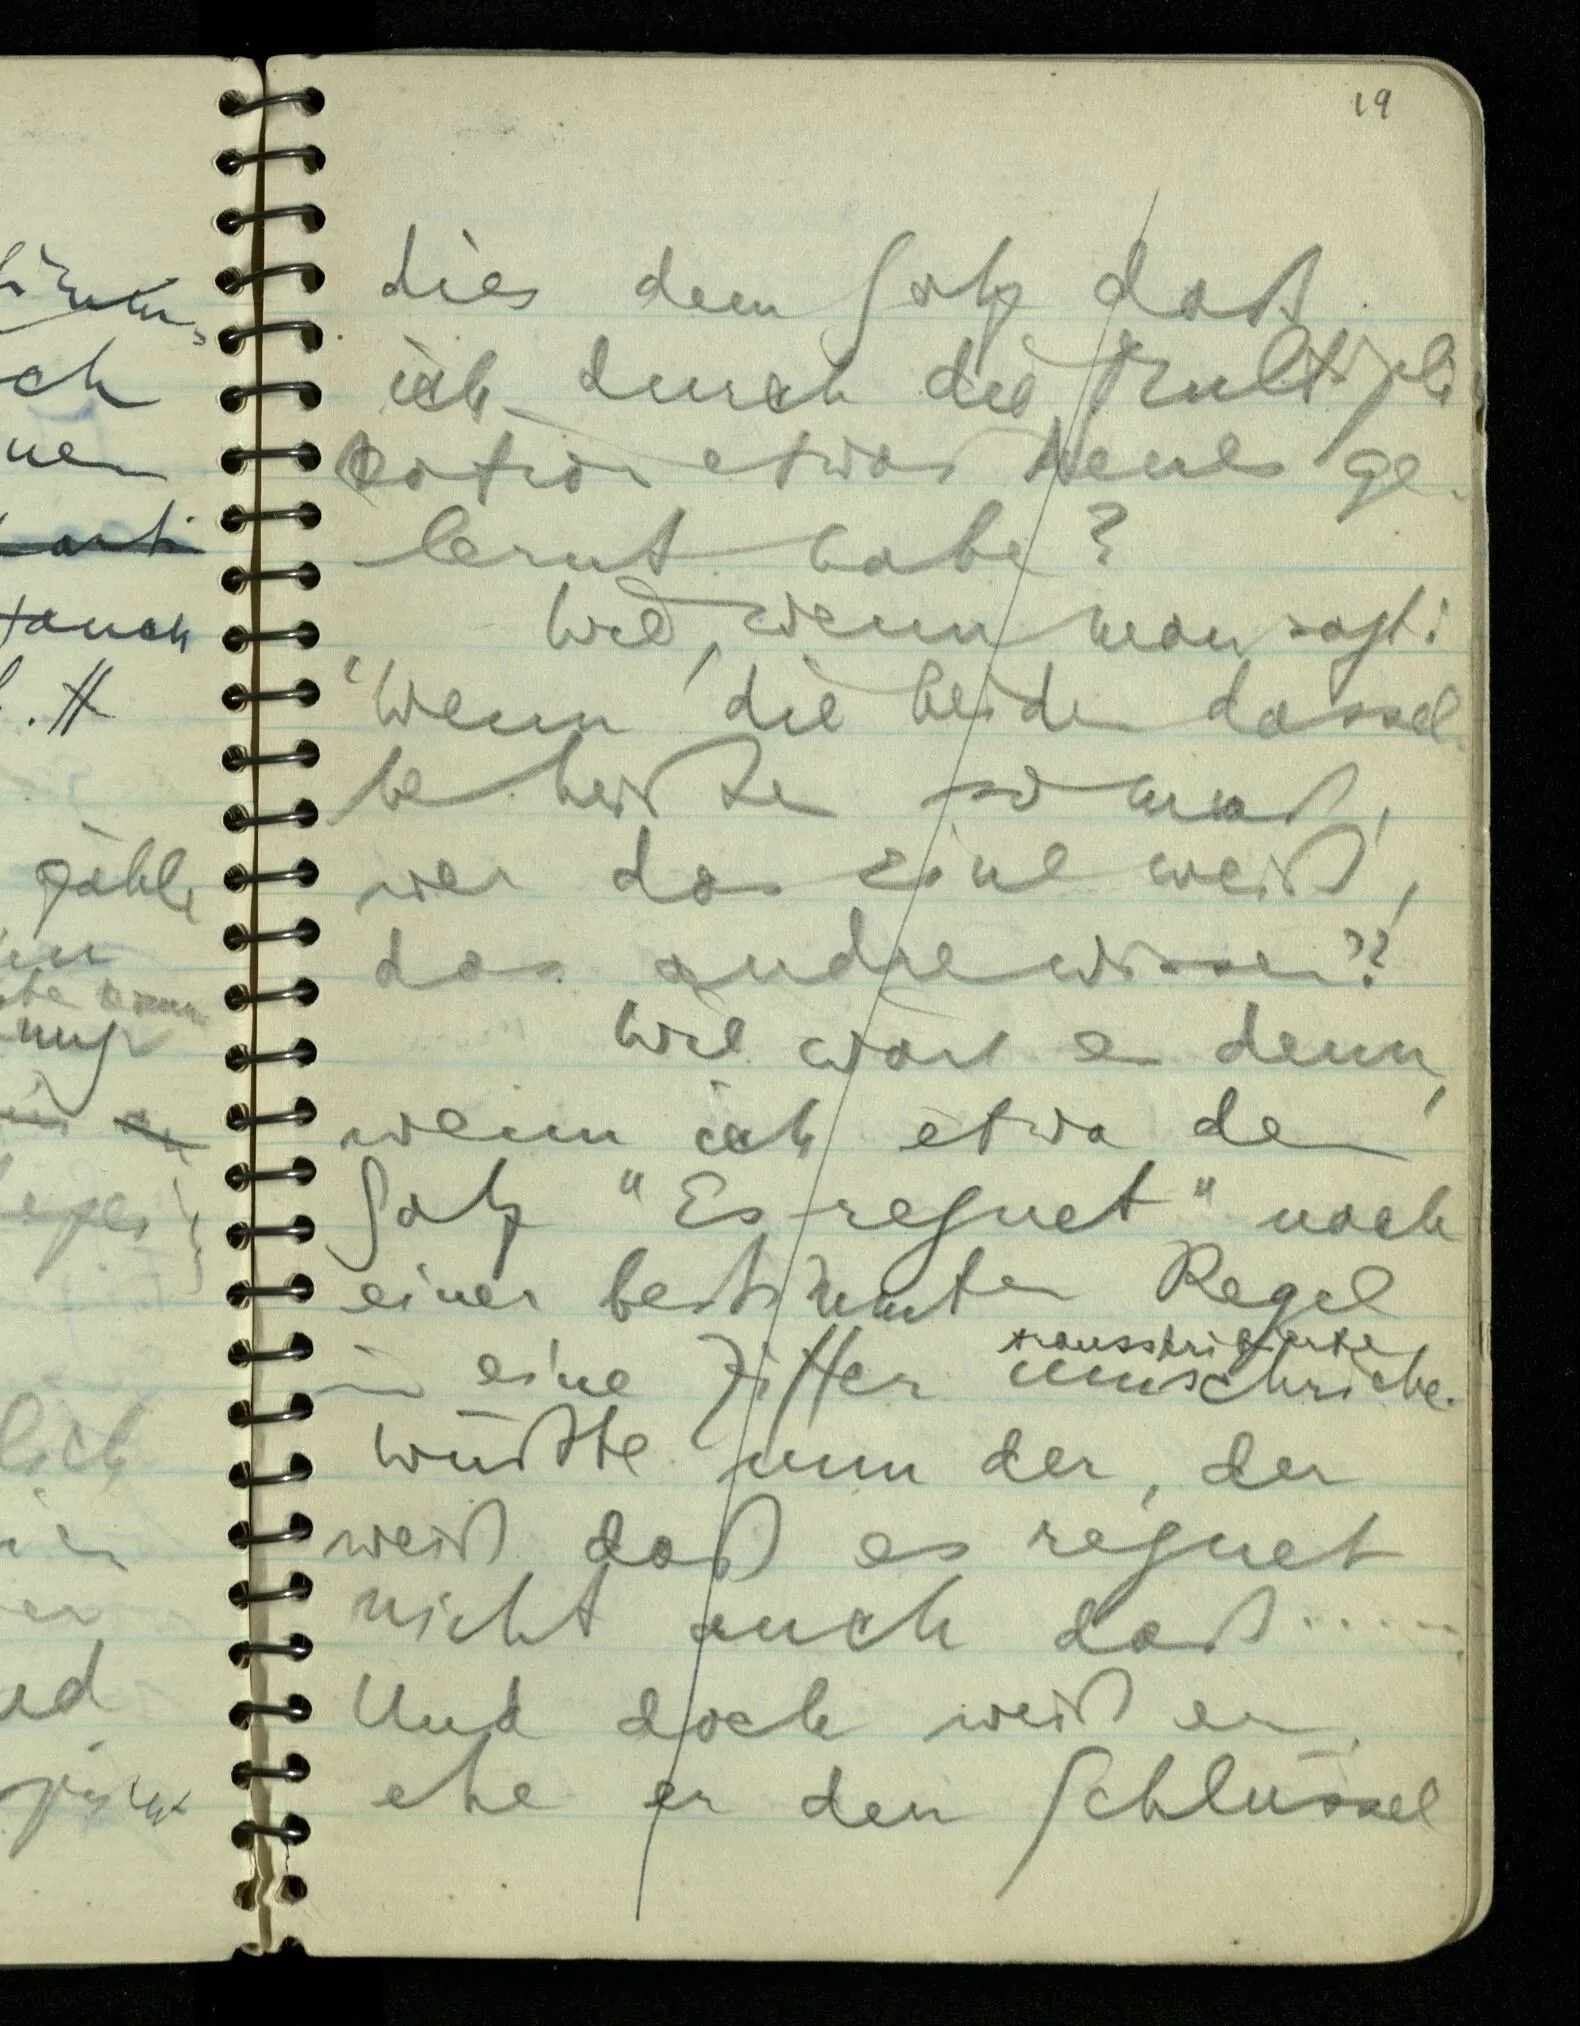 19
dies dem Satz daß
ich durch die Multipli
kation etwas Neues ge-
lernt habe?
Wie, wenn man sagt:
"Wenn die beiden dassel-
be heißen so muß,
wer das eine weiß,
das andre wissen"?
Wie wäre es denn,
wenn ich etwa den
Satz "Es regnet" nach
einer bestimmten Regel
transkribierte
in eine Ziffer umschriebe.
Wüßte nun der, der
weiß daß es regnet
nicht auch daß .....
Und doch weiß er,
ehe er den Schlüssel